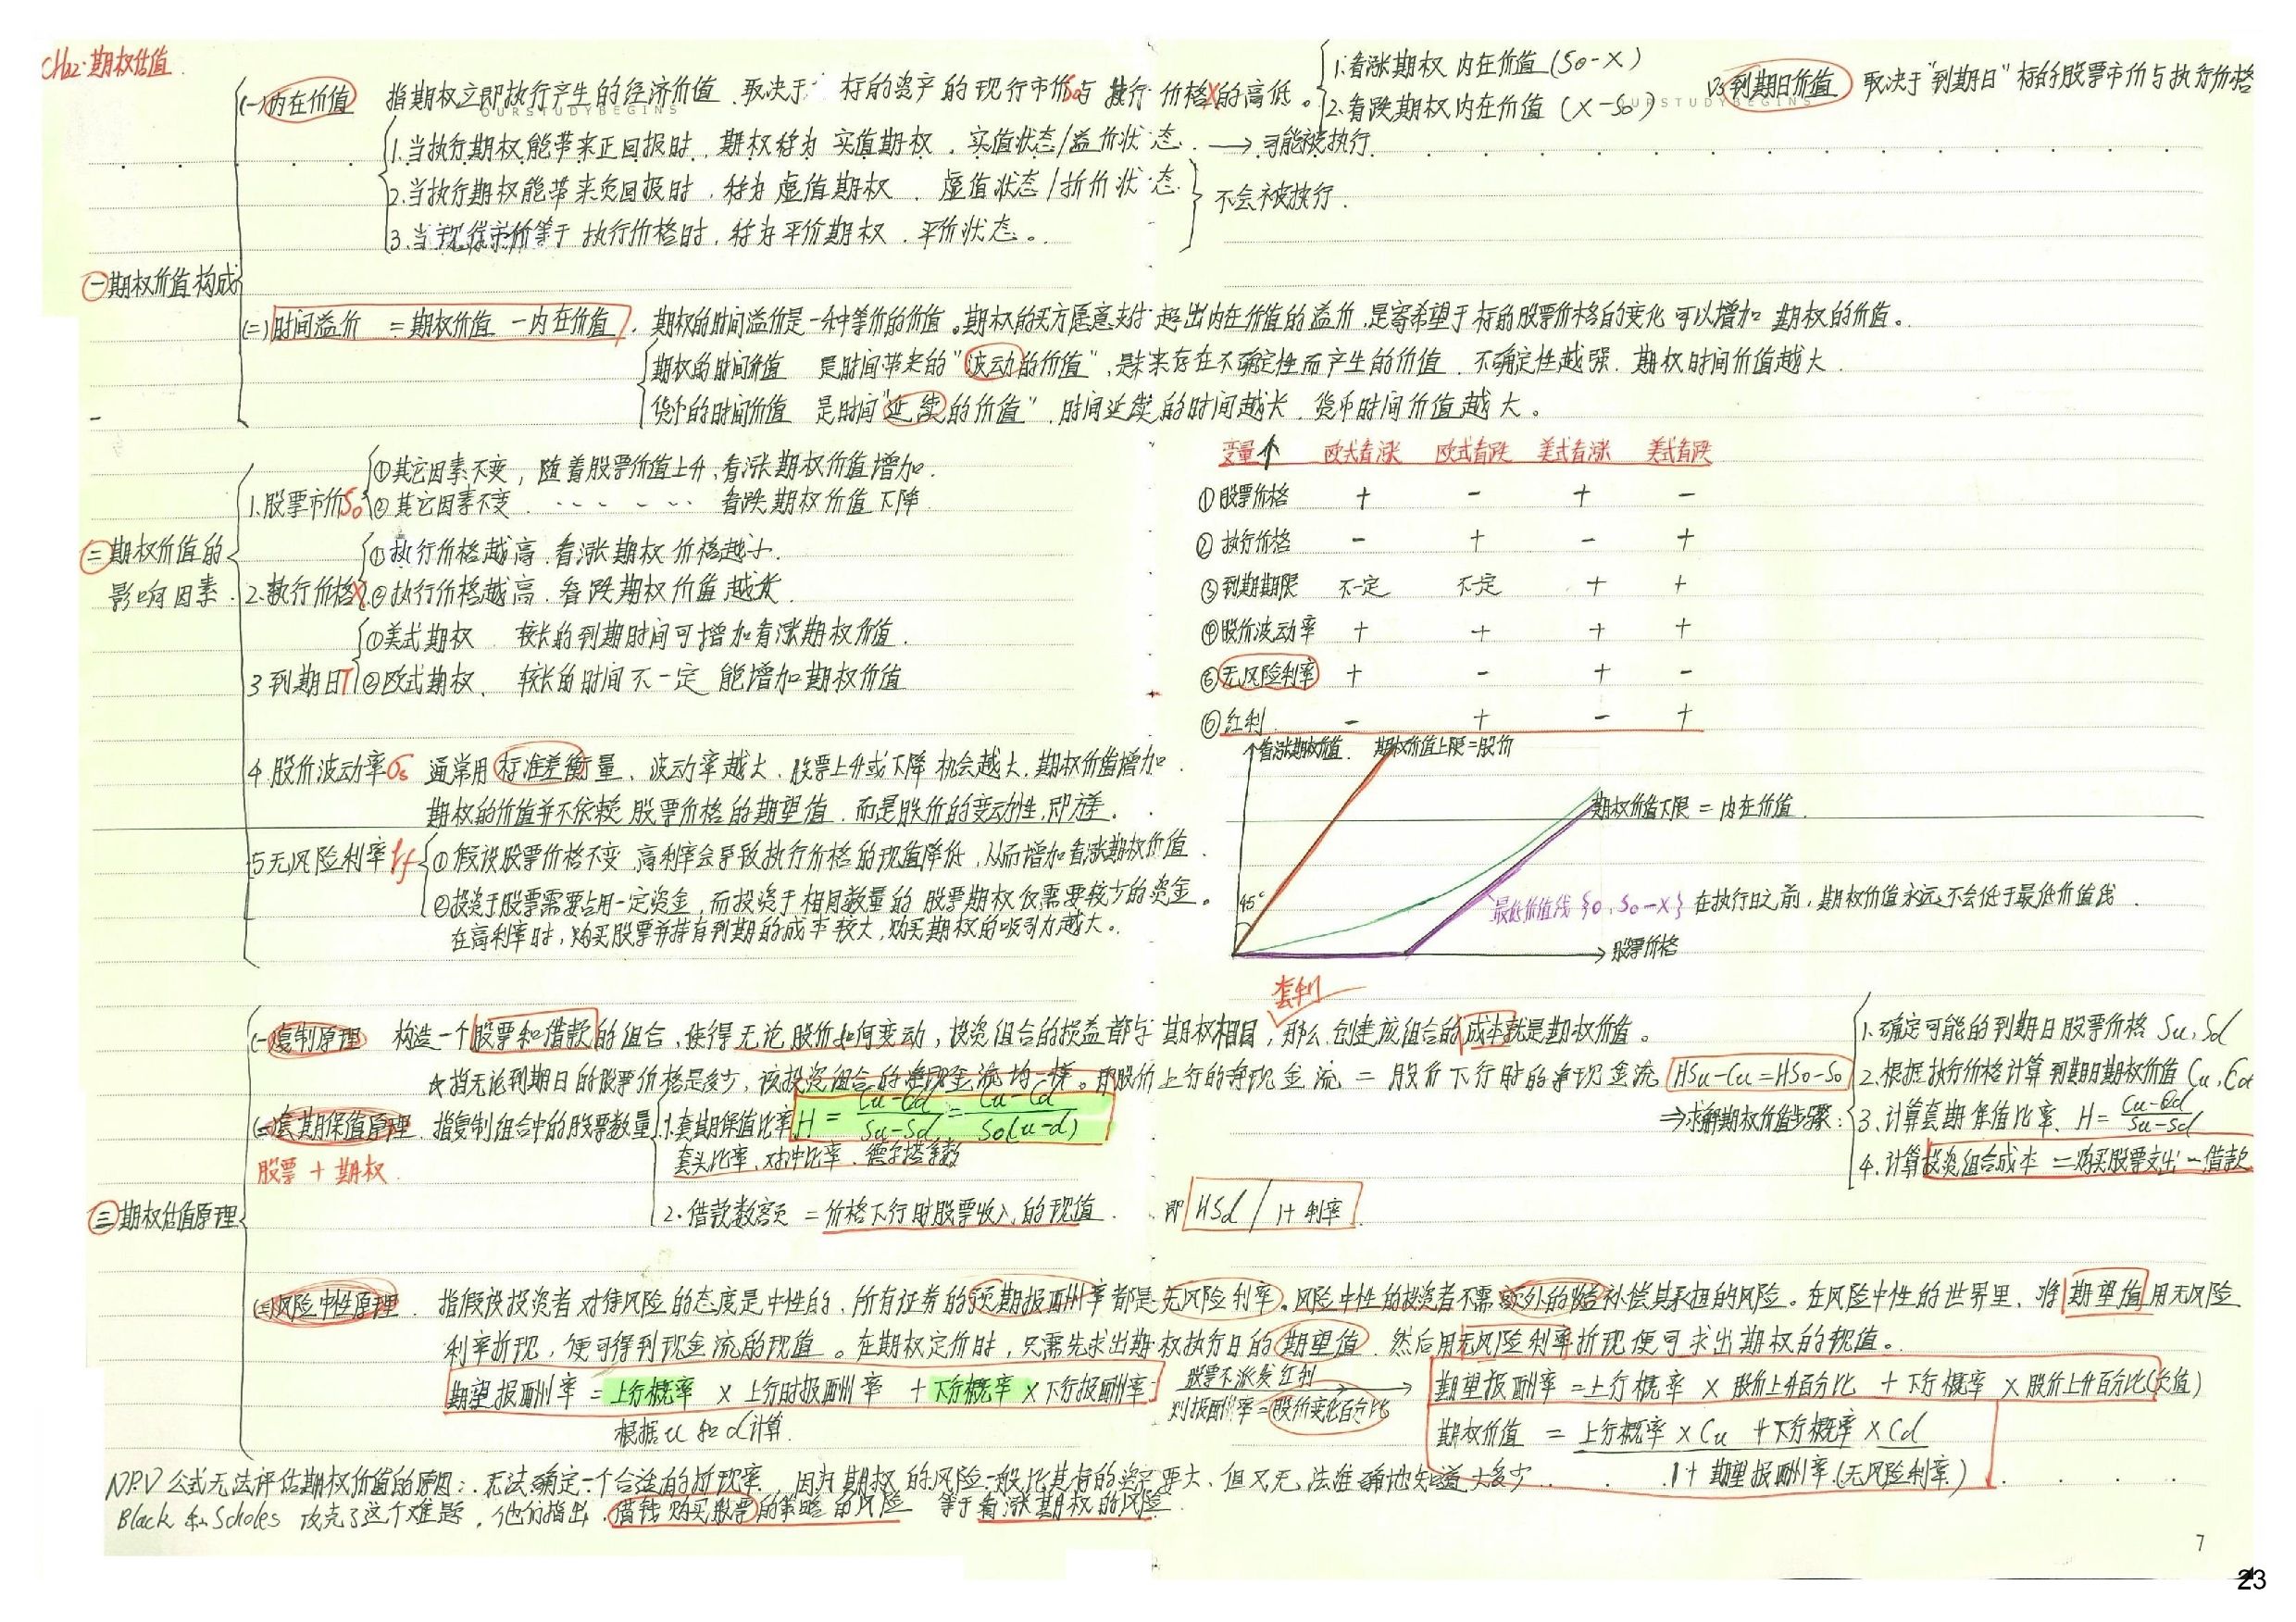 CH22.期权估值
(一)内在价值 指期权立即执行产生的经济价值.取决于 标的资产的现行市价S0与 执行价格X的高低。
1.看涨期权 内在价值(S0-X)
2.看跌期权内在价值 (X-S0)
VS到期日价值 取决于"到期日"标的股票市价与执行价格
OURSTUDYBEGINS
OURSTUDYBEGINS
1.当执行期权能带来正回报时.期权称为 实值期权.实值状态/溢价状态. → 可能被执行.
2.当执行期权能带来负回报时.称为虚值期权.虚值状态/折价状态
不会被执行.
3.当现货市价等于 执行价格时,称为平价期权.平价状态。
一 期权价值构成
(二)时间溢价 =期权价值 -内在价值.期权的时间溢价是一种等价的价值。期权的买方愿意支付 超出内在价值的溢价.是寄希望于标的股票价格的变化可以增加 期权的价值。
期权的时间价值 是时间带来的"波动的价值",是未来存在不确定性而产生的价值.不确定性越强.期权时间价值越大.
货币的时间价值 是时间"延续的价值".时间延续的时间越长.货币时间价值越大。
二 期权价值的影响因素
1.股票市价S0
①其它因素不变,随着股票价值上升,看涨期权价值增加.
②其它因素不变. - - - - - 看跌期权价值下降.
2.执行价格X
①执行价格越高.看涨期权价格越小.
②执行价格越高.看跌期权价值越大.
3到期日T
①美式期权.较长的到期时间可增加看涨期权价值.
②欧式期权、较长的时间不一定 能增加期权价值
4.股价波动率σs 通常用标准差衡量、波动率越大.股票上升或下降机会越大.期权价值增加.
期权的价值并不依赖 股票价格的期望值.而是股价的变动性,即方差.
5无风险利率rf
①假设股票价格不变.高利率会导致执行价格的现值降低,从而增加看涨期权价值.
②投资于股票需要占用一定资金,而投资于相同数量的 股票期权仅需要较少的资金。
在高利率时,购买股票并持有到期的成本较大,购买期权的吸引力越大。
变量↑ 欧式看涨 欧式看跌 美式看涨 美式看跌
①股票价格 + - + -
②执行价格 - + - +
③到期期限 不一定 不一定 + +
④股价波动率 + + + +
⑤无风险利率 + - + -
⑥红利 - + - +
看涨期权价值. 期权价值上限=股价
期权价值下限 = 内在价值.
45°
最低价值线{0,S0-X} 在执行日之前,期权价值永远不会低于最低价值线.
股票价格
三 期权估值原理
套利
(一)复制原理 构造一个股票和借款的组合,使得无论股价如何变动,投资组合的损益都与 期权相同,那么 创建该组合的成本就是期权价值。
☆指无论到期日的股票价格是多少,该投资组合的净现金流均一样。即股价上行的净现金流 = 股价下行时的净现金流 HSu-Cu=HSd-Sd
(二)套期保值原理.指复制组合中的股票数量
股票 + 期权.
1.套期保值比率 H = Cu-Cd/Su-Sd = Cu-Cd/S0(u-d)
套头比率、对冲比率、德尔塔系数
2.借款数额 =价格下行时股票收入的现值. 即 HSd / 1+利率
⇒求解期权价值步骤:
1.确定可能的到期日股票价格 Su,Sd
2.根据执行价格计算到期日期权价值Cu,Cd
3.计算套期保值比率、H= Cu-Cd/Su-Sd
4.计算投资组合成本 =购买股票支出-借款
(三)风险中性原理. 指假设投资者对待风险的态度是中性的,所有证券的预期报酬率都是无风险利率。风险中性的投资者不需额外的收益补偿其承担的风险。在风险中性的世界里、将期望值用无风险
利率折现,便可得到现金流的现值。在期权定价时,只需先求出期权执行日的期望值.然后用无风险利率折现便可求出期权的现值。
期望报酬率=上行概率 × 上行时报酬率 +下行概率×下行报酬率
根据u和d计算.
股票不派发红利
则报酬率=股价变化百分比
期望报酬率=上行概率 × 股价上升百分比 + 下行概率 ×股价上升百分比(负值)
期权价值 = 上行概率×Cu +下行概率×Cd
1+期望报酬率(无风险利率)
NPV公式无法评估期权价值的原因:无法确定一个合适的折现率.因为期权的风险一般比其标的资产要大、但又无法准确地知道大多少.
Black 和 Scholes 攻克了这个难题.他们指出.借钱购买股票的策略的风险 等于看涨期权的风险.
7
23